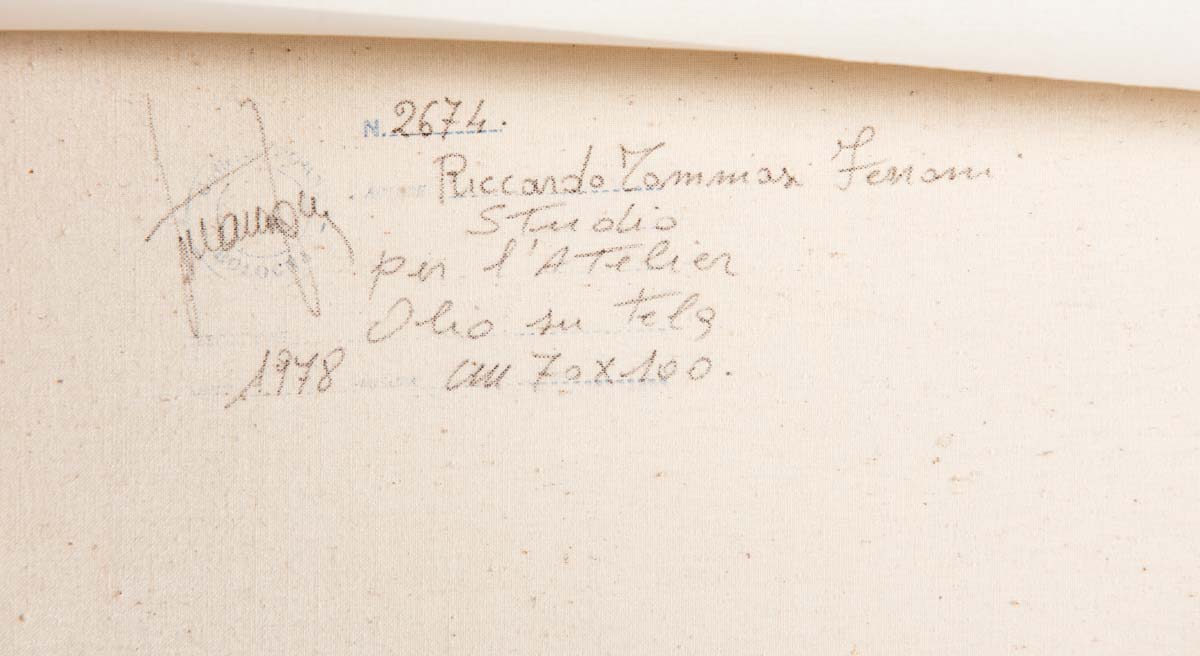 N. 2674.
Riccardo Tommasi Ferroni
Studio
per l'Atelier
Olio su Tela
1978 cm 70x100.
BOLOGNA